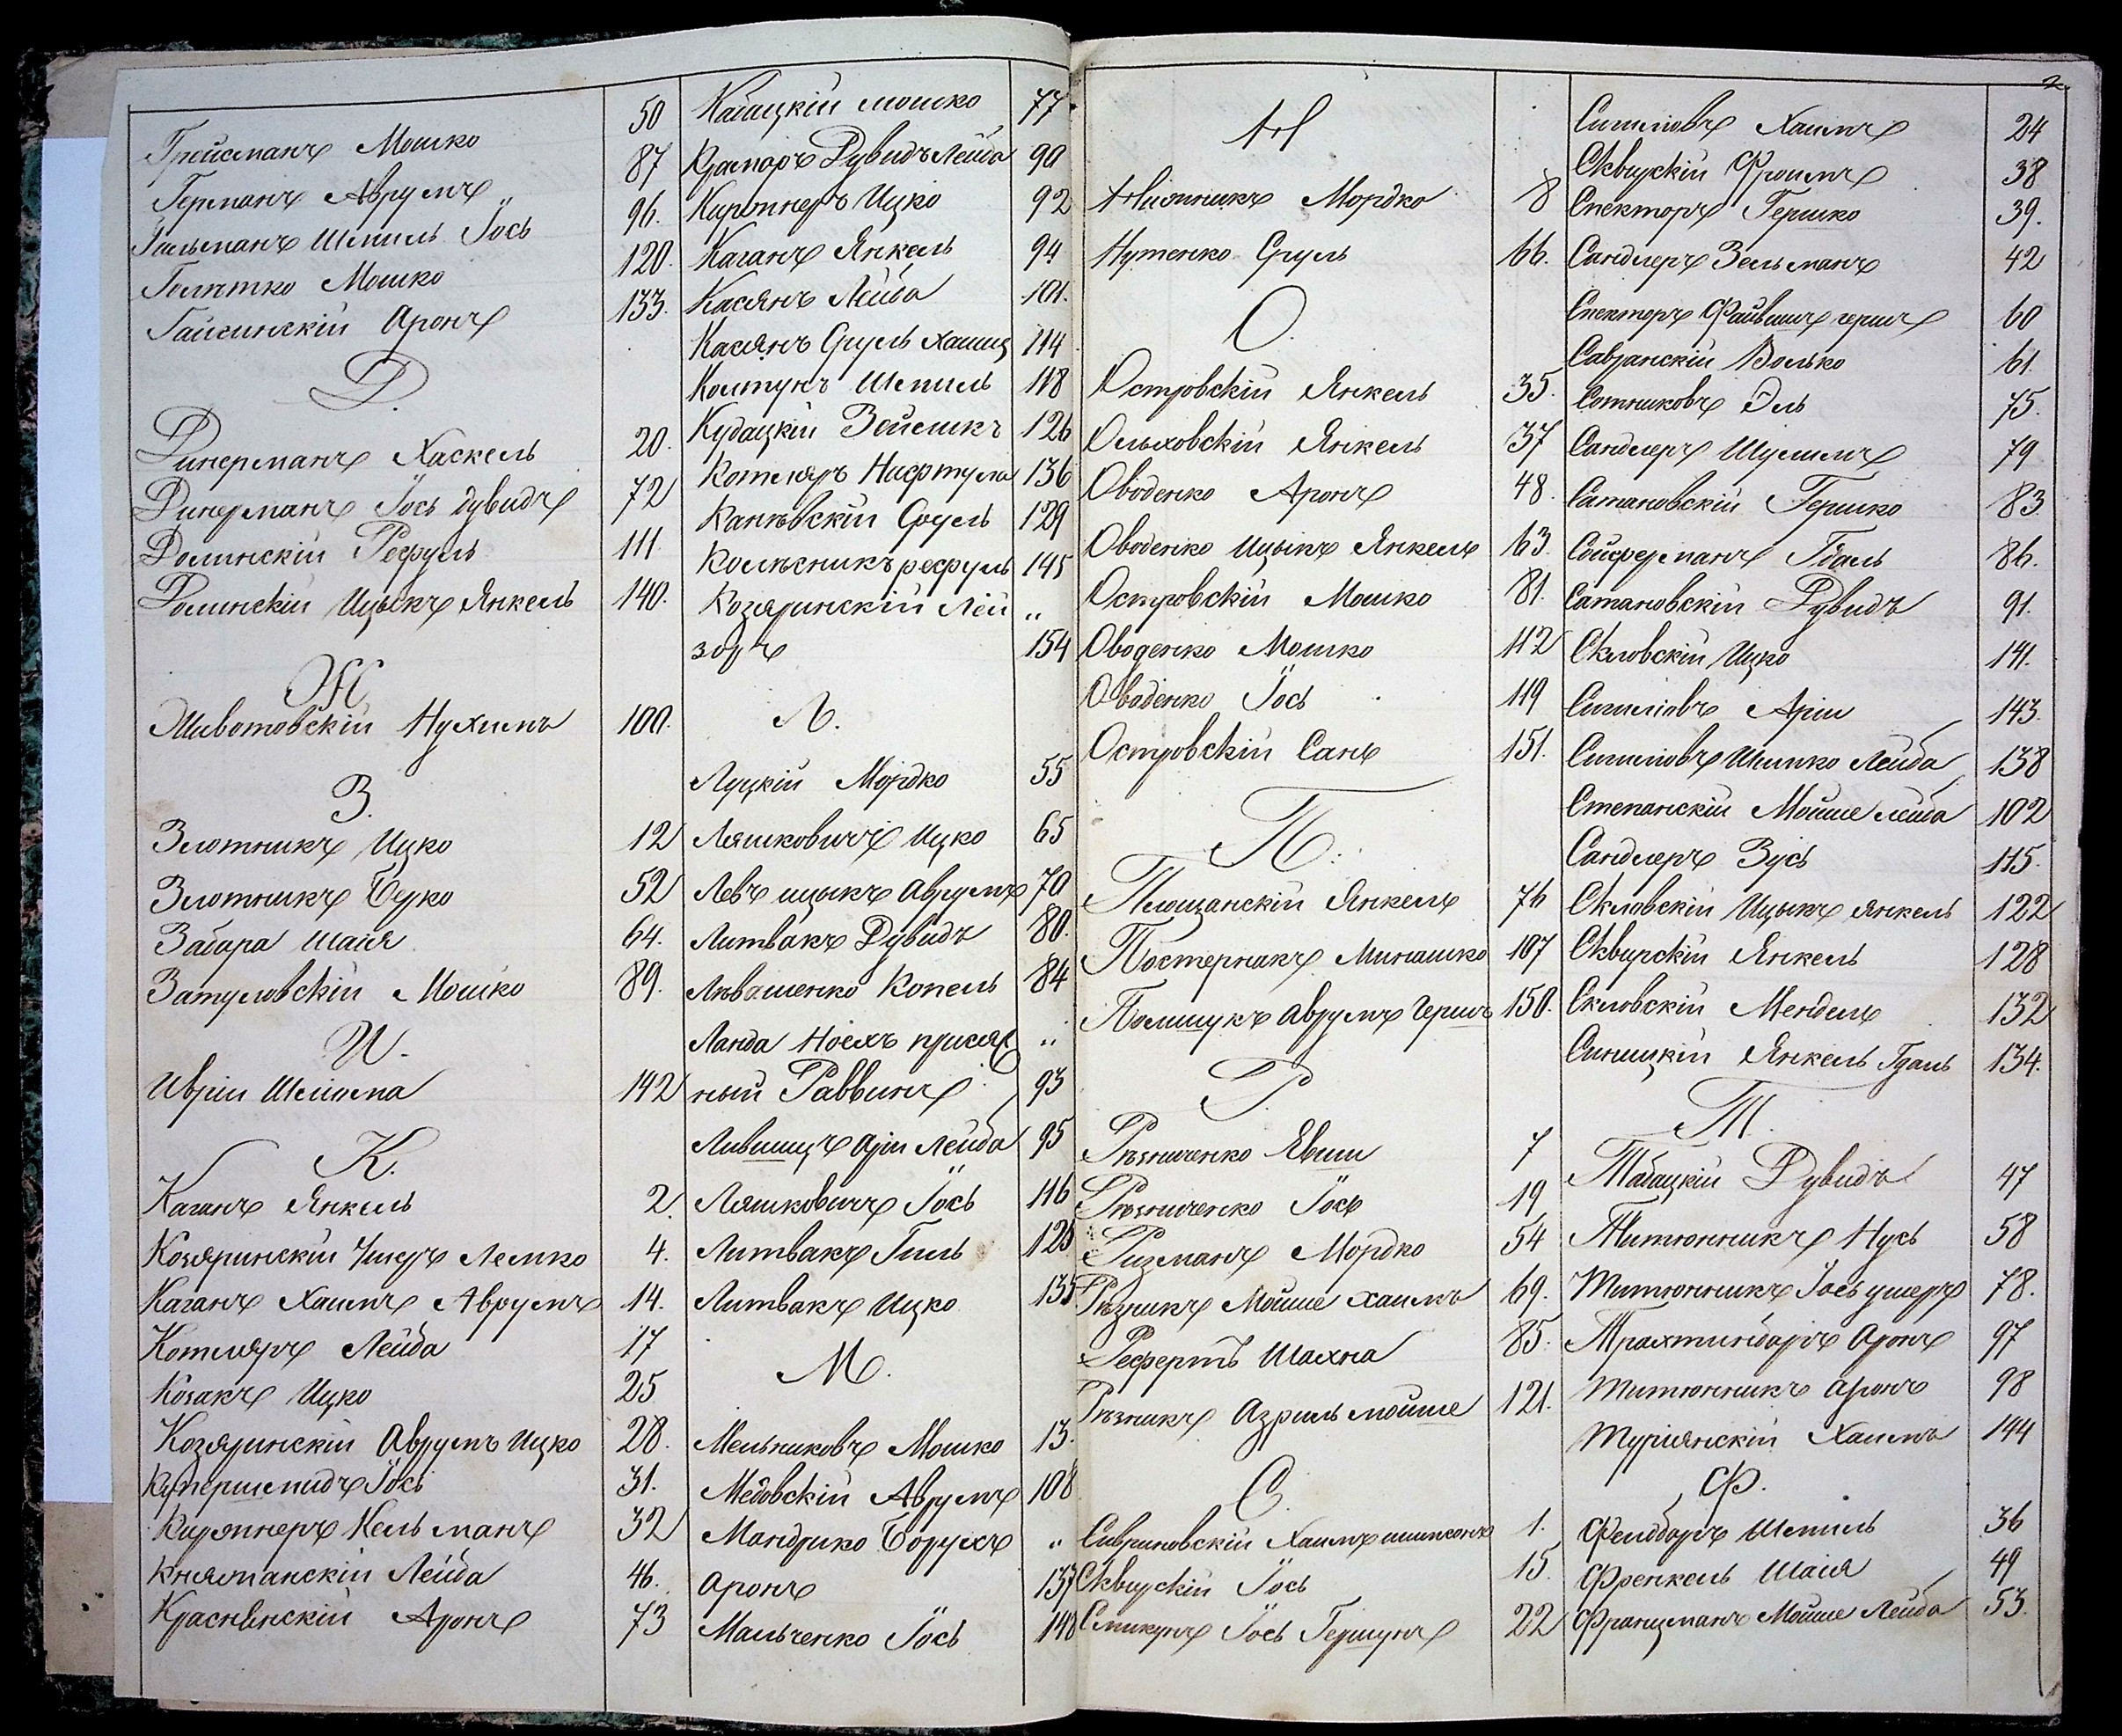 Грейсманъ Мошко 50
Германъ Аврумъ 87
Гильманъ Шмиль Іось 96.
Голятко Мошко 120.
Гайсинскій Аронъ 133.
Д.
Динерманъ Хаскель 20.
Динерманъ Іось Дувидъ 72
Долинскій Рефуль 111.
Долинскій Ицыкъ Янкель 140.
Ж
Животовскій Нухимъ 100.
З.
Злотникъ Ицко 12
Злотникъ Берко 52
Забара Шаія 64.
Затуловскій Мошко 89.
И.
Иврій Шеліома 142
К.
Каганъ Янкель 2.
Козяринскій Лемко 4.
Каганъ Хаимъ Аврумъ 14.
Котляръ Лейба 17
Козакъ Ицко 25
Козяринскій Аврумъ Ицко 28.
Купершмидъ Іось 31.
Киржнеръ Кельманъ 32
Княжанскій Лейба 46.
Краснянскій Аронъ 73
Кагацкій Мошко 77
Крамаръ Дувидъ Лейба 90
Киржнеръ Ицко 92
Каганъ Янкель 94
Касянъ Лейба 101.
Касянъ Сруль Хаимъ 114
Колтунъ Шмиль 118
Кудацкій Зейликъ 126
Котляръ Нафтула 136
Каневскій Сруль 129
Колесникъ Рефуль 145
Козяринскій Лей „
зоръ 154
Л.
Луцкій Мордко 55
Ляшковичъ Ицко 65
Левъ Ицыкъ Аврумъ 70
Литвакъ Дувидъ 80.
Левашенко Копель 84
Ланда Ноехъ присяж „
ный Раввинъ 93
Лившицъ Арій Лейба 95
Ляшковичъ Іось 116
Литвакъ Гиль 125
Литвакъ Ицко 135.
М.
Мельниковъ Мошко 13.
Медовскій Аврумъ 108
Мандрико Борухъ „
Аронъ 137
Мальченко Іось 148
2
Н
Мордко 8
Нутенко Сруль 66.
О.
Островскій Янкель 35.
Ольховскій Янкель 37
Оводенко Аронъ 48.
Оводенко Ицыкъ Янкель 63.
Островскій Мошко 81.
Оводенко Мошко 112
Оводенко Іось 119
Островскій Сань 151.
П.
Площанскій Янкель 76
Постернакъ Минашко 107
Полищукъ Аврумъ Гершъ 150.
Р.
Резниченко Явши 7
Резниченко Іось 19
Ризманъ Мордко 54
Резникъ Мойше Хаимъ 69.
Реферть Шахна 85.
Резникъ Азриль Мойше 121.
С.
Савриновскій Хаимъ Шимсонъ 1.
Сквирскій Іось 15.
Смикунъ Іось Гершунъ 22
Сигиловъ Хаимъ 24
Сквирскій Фроимъ 38
Спекторъ Гершко 39.
Сандлеръ Зельманъ 42
Спекторъ Файвишъ Гершъ 60
Савранскій Волько 61.
Сотниковъ Эль 75.
Сандлеръ Шулимъ 79
Сатановскій Гершко 83
Сойферманъ Гдаль 86.
Сатановскій Дувидъ 91.
Скловскій Ицко 141.
Сигиловъ Арій 143.
Сигиловъ Шимко Лейба 138
Степанскій Мойше Лейба 102
Сандлеръ Зусь 115.
Скловскій Ицыкъ Янкель 122
Сквирскій Янкель 128
Скловскій Мендель 132
Синицкій Янкель Гдаль 134.
Т.
Табацкій Дувидъ 47
Титюнникъ Нусь 58
Титюнникъ Іось Ушеръ 78.
Трахтинбаръ Аронъ 97
Титюнникъ Аронъ 98
Туріянскій Хаимъ 144
Ф.
Фельдбаръ Шмиль 36
Френкель Шаія 49
Францманъ Мойше Лейба 53.